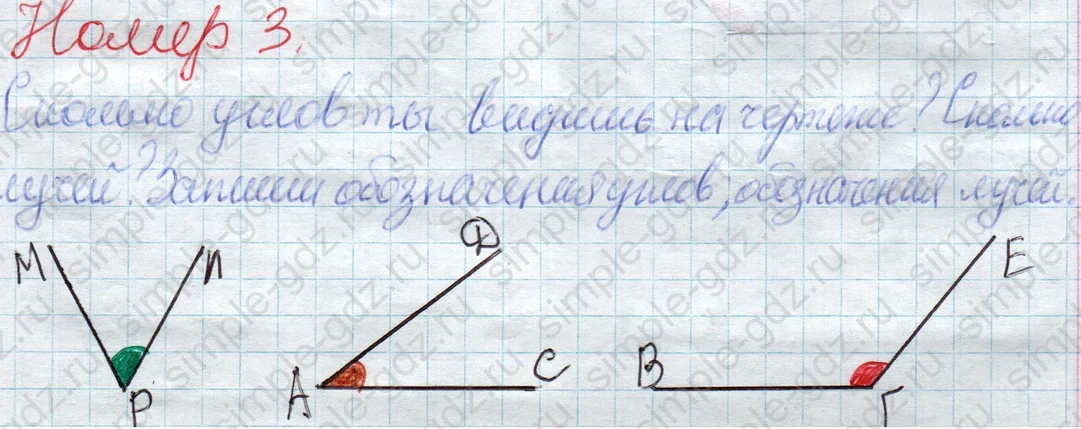 Номер 3.
Сколько углов ты видишь на чертеже? Сколько
лучей? Запиши обозначения углов, обозначения лучей.
М П Д Е
А С В
Р Г
simple-gdz.ru